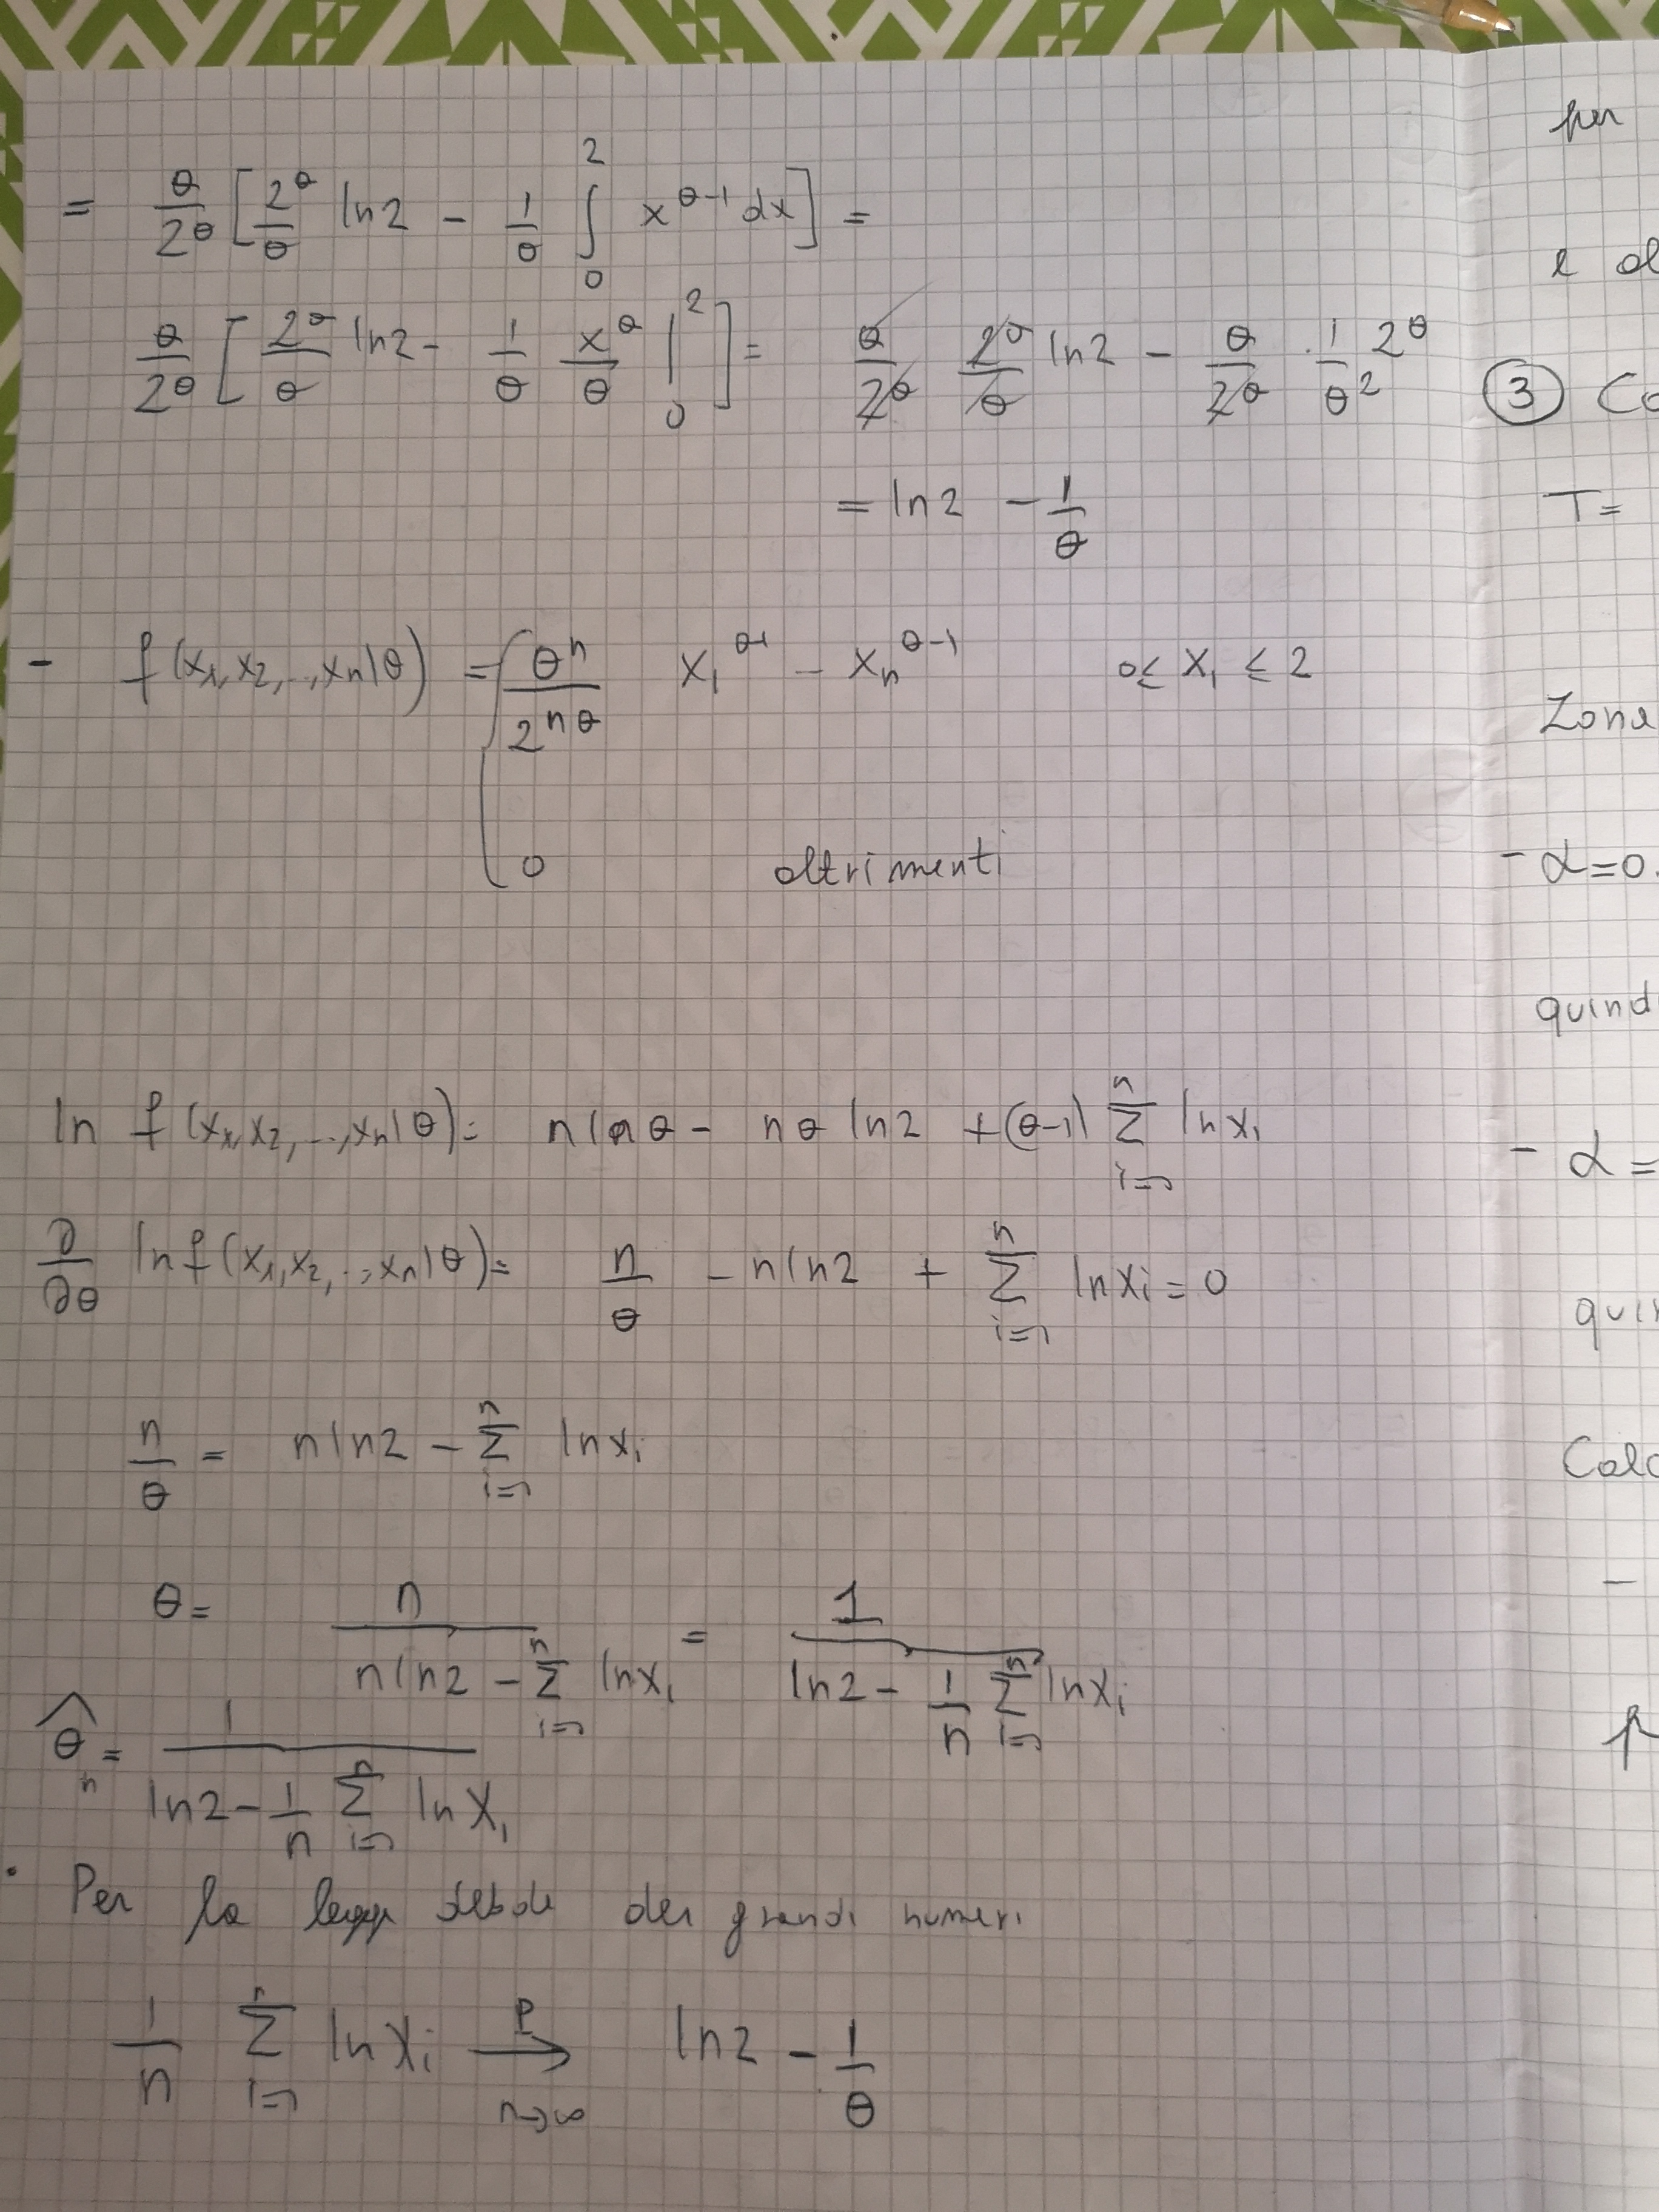 = θ/2^θ [ 2^θ/θ ln2 - 1/θ ∫_0^2 x^{θ-1} dx ] =
θ/2^θ [ 2^θ/θ ln2 - 1/θ x^θ/θ |_0^2 ] = θ/2^θ 2^θ/θ ln2 - θ/2^θ · 1/θ^2 2^θ
= ln2 - 1/θ
- f(x_1, x_2, ..., x_n|θ) = { θ^n/2^{nθ} x_1^{θ-1} -- x_n^{θ-1} 0 ≤ x_i ≤ 2
0 altrimenti
ln f(x_1, x_2, ..., x_n|θ) = n ln θ - nθ ln2 + (θ-1) Σ_{i=1}^n ln x_i
∂/∂θ ln f(x_1, x_2, ..., x_n|θ) = n/θ - n ln2 + Σ_{i=1}^n ln x_i = 0
n/θ = n ln2 - Σ_{i=1}^n ln x_i
θ = n/(n ln2 - Σ_{i=1}^n ln x_i) = 1/(ln2 - 1/n Σ_{i=1}^n ln x_i)
θ̂_n = 1/(ln2 - 1/n Σ_{i=1}^n ln X_i)
· Per la legge debole dei grandi numeri
1/n Σ_{i=1}^n ln X_i →^P_{n→∞} ln2 - 1/θ
per
e d
③ Co
T=
Zona
- α=0.
quind
- α=
quin
Calc
-
p